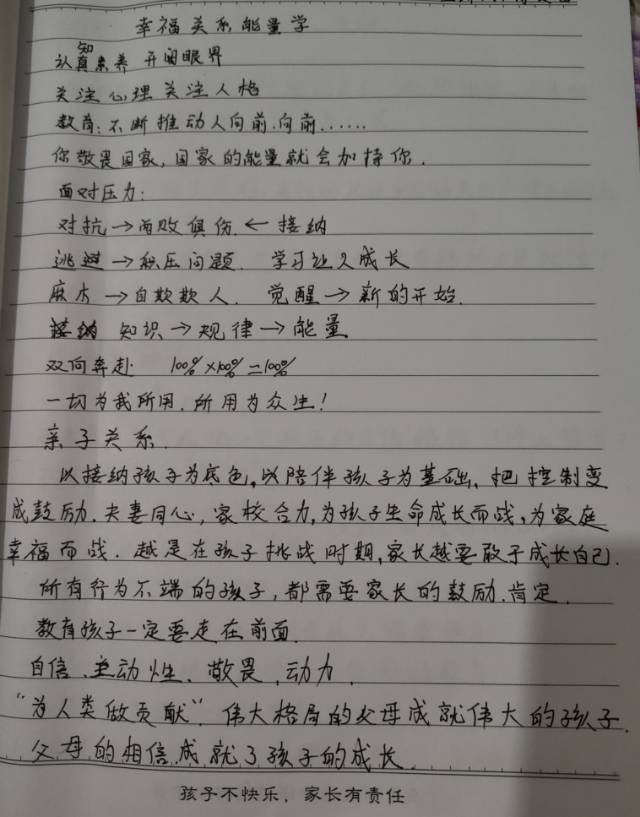 幸福关系能量学
认知真素养 开阔眼界
关注心理关注人格
教育:不断推动人向前.向前......
你敬畏国家,国家的能量就会加持你.
面对压力:
对抗→两败俱伤.←接纳
逃避→积压问题. 学习让人成长
麻木→自欺欺人. 觉醒→新的开始.
知识→规律→能量
双向奔赴 100%×100%=100%
一切为我所用.所用为众生!
亲子关系.
以接纳孩子为底色,以陪伴孩子为基础,把控制变
成鼓励.夫妻同心,家校合力,为孩子生命成长而战,为家庭
幸福而战.越是在孩子挑战时期,家长越要敢于成长自己.
所有行为不端的孩子,都需要家长的鼓励.肯定.
教育孩子一定要走在前面.
自信.主动性.敬畏.动力.
"为人类做贡献".伟大格局的父母成就伟大的孩子.
父母的相信,成就了孩子的成长.
孩子不快乐,家长有责任